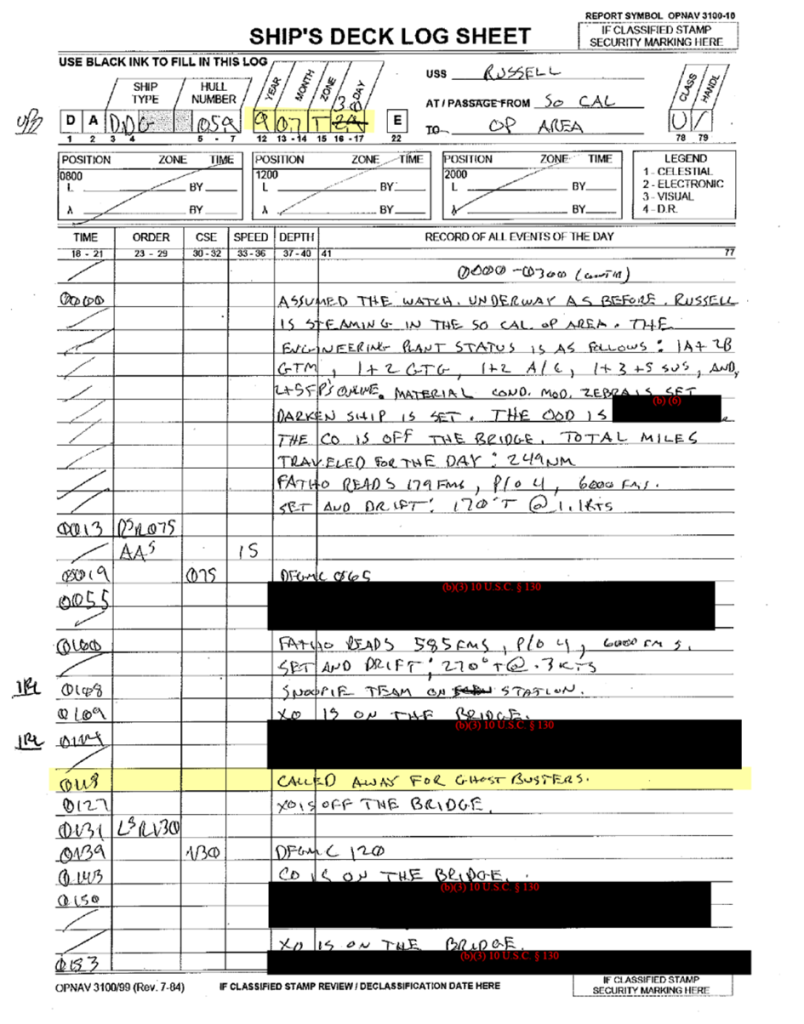 REPORT SYMBOL OPNAV 3100-10
SHIP'S DECK LOG SHEET
IF CLASSIFIED STAMP
SECURITY MARKING HERE
USE BLACK INK TO FILL IN THIS LOG
SHIP TYPE HULL NUMBER YEAR MONTH ZONE DAY
USS RUSSELL
AT / PASSAGE FROM SO CAL
TO OP AREA
CLASS HANDL
30
D A DDG 059 9 07 T 29 E U
1 2 3 4 5 - 7 12 13 - 14 15 16 - 17 22 78 79
POSITION ZONE TIME POSITION ZONE TIME POSITION ZONE TIME LEGEND
0800 1200 2000 1 - CELESTIAL
L BY L BY L BY 2 - ELECTRONIC
3 - VISUAL
λ BY λ BY λ BY 4 - D.R.
TIME ORDER CSE SPEED DEPTH RECORD OF ALL EVENTS OF THE DAY
18 - 21 23 - 29 30 - 32 33 - 36 37 - 40 41 77
0000 - 0300
0000 ASSUMED THE WATCH. UNDERWAY AS BEFORE. RUSSELL
IS STEAMING IN THE SO CAL OP AREA. THE
ENGINEERING PLANT STATUS IS AS FOLLOWS: 1A + 2B
GTM, 1+2 GTG, 1+2 A/C, 1+3+5 SWS, AND,
2+5 FP'S ONLINE. MATERIAL COND. MOD. ZEBRA IS SET
DARKEN SHIP IS SET. THE OOD IS (b) (6)
THE CO IS OFF THE BRIDGE. TOTAL MILES
TRAVELED FOR THE DAY: 249NM
FATHO READS 179 FMS, P/O 4, 6000 FMS.
SET AND DRIFT: 170°T @ 1.1KTS
0013 R075
15
0019 075 DFGMC 065
0055 (b)(3) 10 U.S.C. § 130
0100 FATHO READS 585 FMS, P/O 4, 6000 FMS.
SET AND DRIFT: 270°T @ .3 KTS
0108 SNOOPIE TEAM ON STATION.
0109 XO IS ON THE BRIDGE.
(b)(3) 10 U.S.C. § 130
0118 CALLED AWAY FOR GHOST BUSTERS.
0127 XO IS OFF THE BRIDGE.
0131 R130
0139 130 DFGMC 120
0143 CO IS ON THE BRIDGE.
0150 (b)(3) 10 U.S.C. § 130
XO IS ON THE BRIDGE.
0153 (b)(3) 10 U.S.C. § 130
OPNAV 3100/99 (Rev. 7-84) IF CLASSIFIED STAMP REVIEW / DECLASSIFICATION DATE HERE
IF CLASSIFIED STAMP
SECURITY MARKING HERE